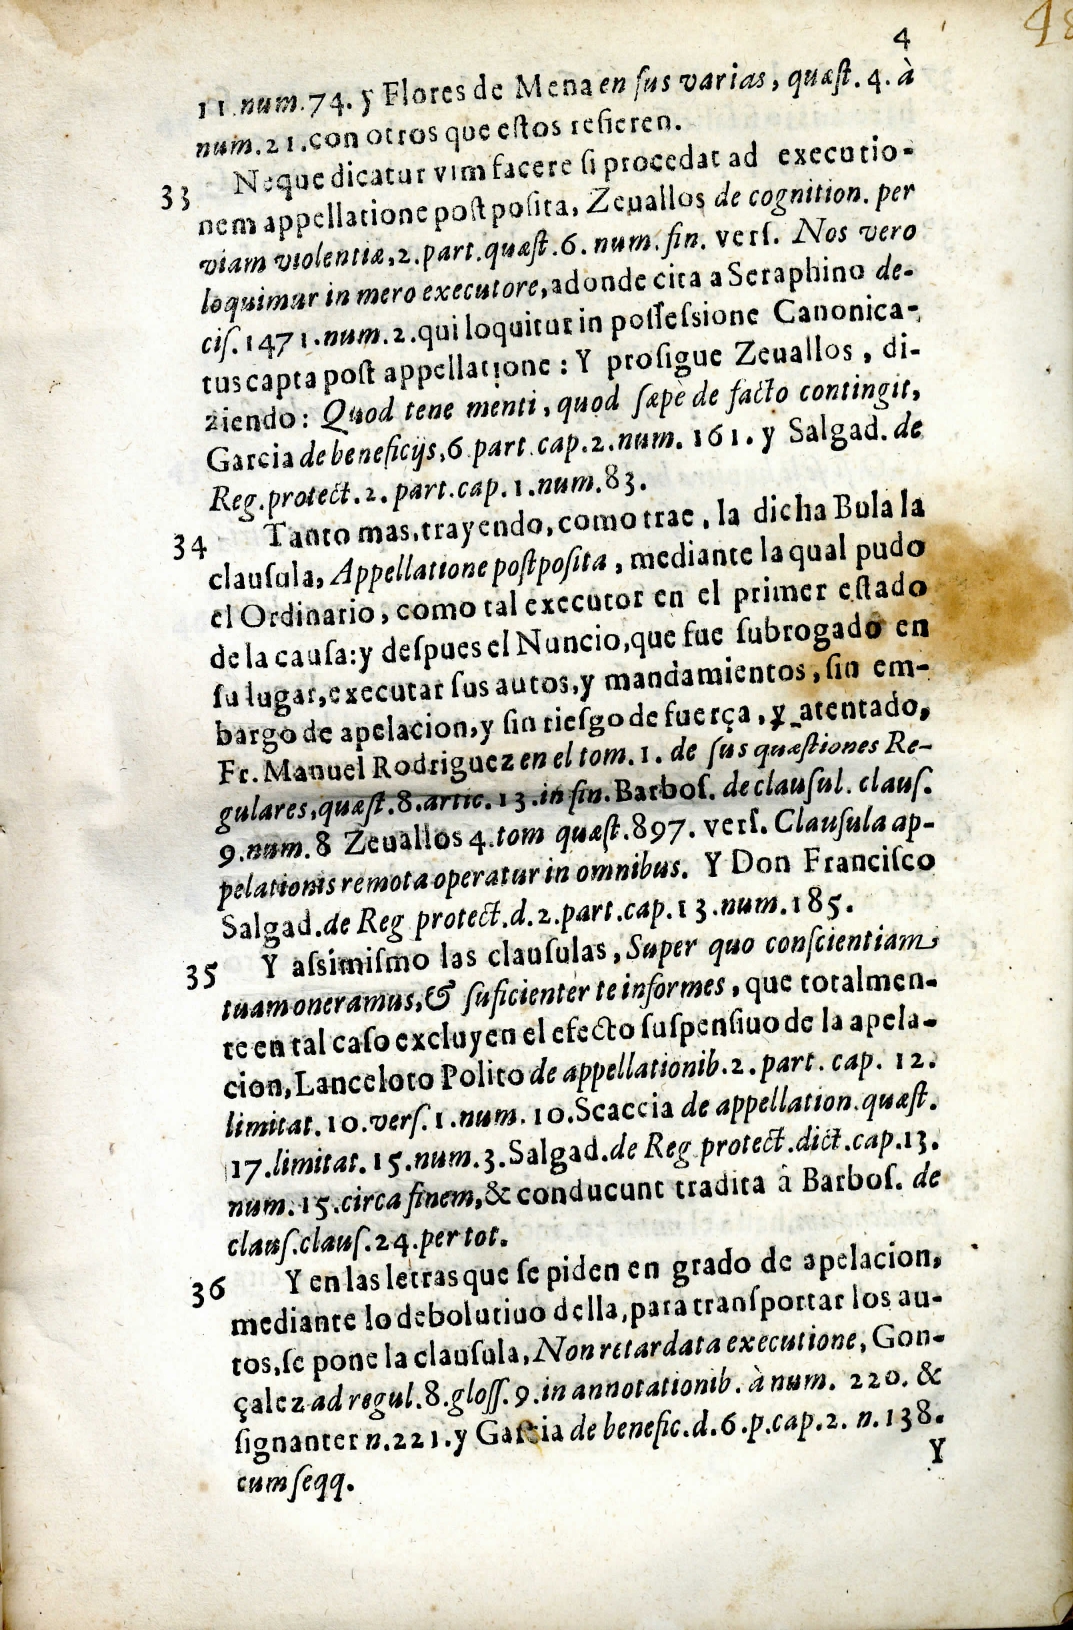 4
48
11.num.74. y Flores de Mena en ſus varias, quæſt. 4. à
num.21.con otros que eſtos refieren.
33 Neque dicatur vim facere ſi procedat ad executio-
nem appellatione poſt poſita, Zeuallos de cognition. per
viam violentiæ, 2. part. quæſt. 6. num. fin. verſ. Nos vero
loquimur in mero executore, adonde cita a Seraphino de-
ciſ. 1471. num. 2. qui loquitur in poſſeſsione Canonica-
tus capta poſt appellatione: Y proſigue Zeuallos, di-
ziendo: Quod tene menti, quod ſæpè de facto contingit,
Garcia de beneficijs, 6 part. cap. 2. num. 161. y Salgad. de
Reg. protect. 2. part. cap. 1. num. 83.
34 Tanto mas, trayendo, como trae, la dicha Bula la
clauſula, Appellatione poſtpoſita, mediante la qual pudo
el Ordinario, como tal executor en el primer eſtado
de la cauſa: y deſpues el Nuncio, que fue ſubrogado en
ſu lugar, executar ſus autos, y mandamientos, ſin em-
bargo de apelacion, y ſin rieſgo de fuerça, y atentado,
Fr. Manuel Rodriguez en el tom. 1. de ſus quæſtiones Re-
gulares, quæſt. 8. artic. 13. in fin. Barboſ. de clauſul. clauſ.
9. num. 8 Zeuallos 4. tom quæſt. 897. verſ. Clauſula ap-
pelationis remota operatur in omnibus. Y Don Franciſco
Salgad. de Reg protect. d. 2. part. cap. 13. num. 185.
35 Y aſsimiſmo las clauſulas, Super quo conſcientiam
tuam oneramus, & ſuficienter te informes, que totalmen-
te en tal caſo excluyen el efecto ſuſpenſiuo de la apela-
cion, Lanceloto Polito de appellationib. 2. part. cap. 12.
limitat. 10. verſ. 1. num. 10. Scaccia de appellation. quæſt.
17. limitat. 15. num. 3. Salgad. de Reg protect. dict. cap. 13.
num. 15. circa finem, & conducunt tradita à Barboſ. de
clauſ. clauſ. 24. per tot.
36 Y en las letras que ſe piden en grado de apelacion,
mediante lo debolutiuo della, para tranſportar los au-
tos, ſe pone la clauſula, Non retardata executione, Gon-
çalez ad regul. 8. gloſſ. 9. in annotationib. à num. 220. &
ſignanter n. 221. y Garcia de benefic. d. 6. p. cap. 2. n. 138.
cum ſeqq.
Y